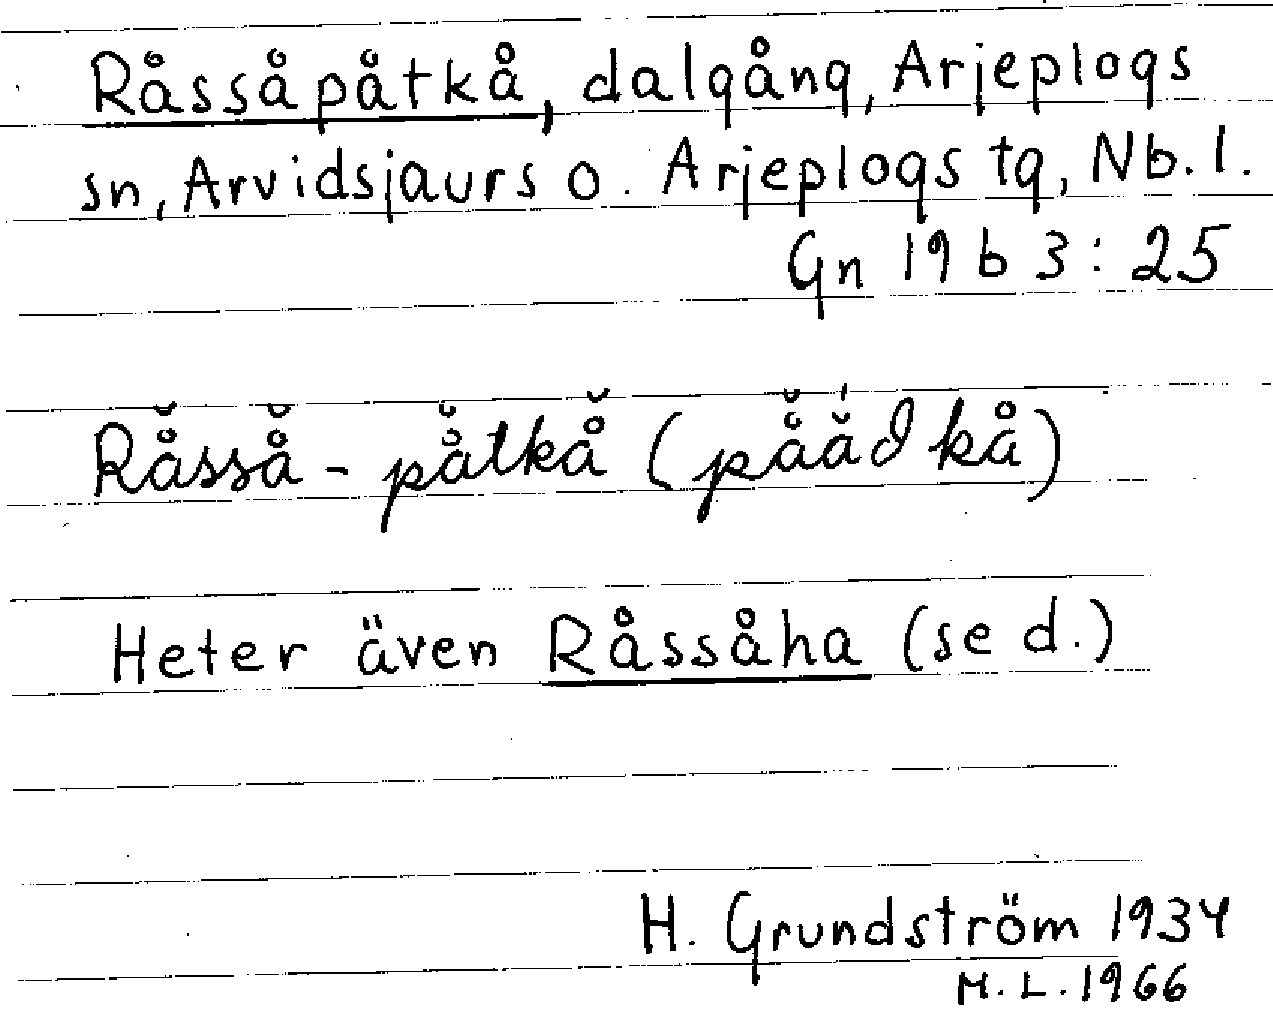 Råssåpåtkå, dalgång, Arjeplogs
sn, Arvidsjaurs o. Arjeplogs tg, Nb. l.
Gn 19 b 3 : 25
Rå̆sså̆ - på̆tkå̆ (på̆å̆́dkå)
Heter även Råssåha (se d.)
H. Grundström 1934
M. L. 1966